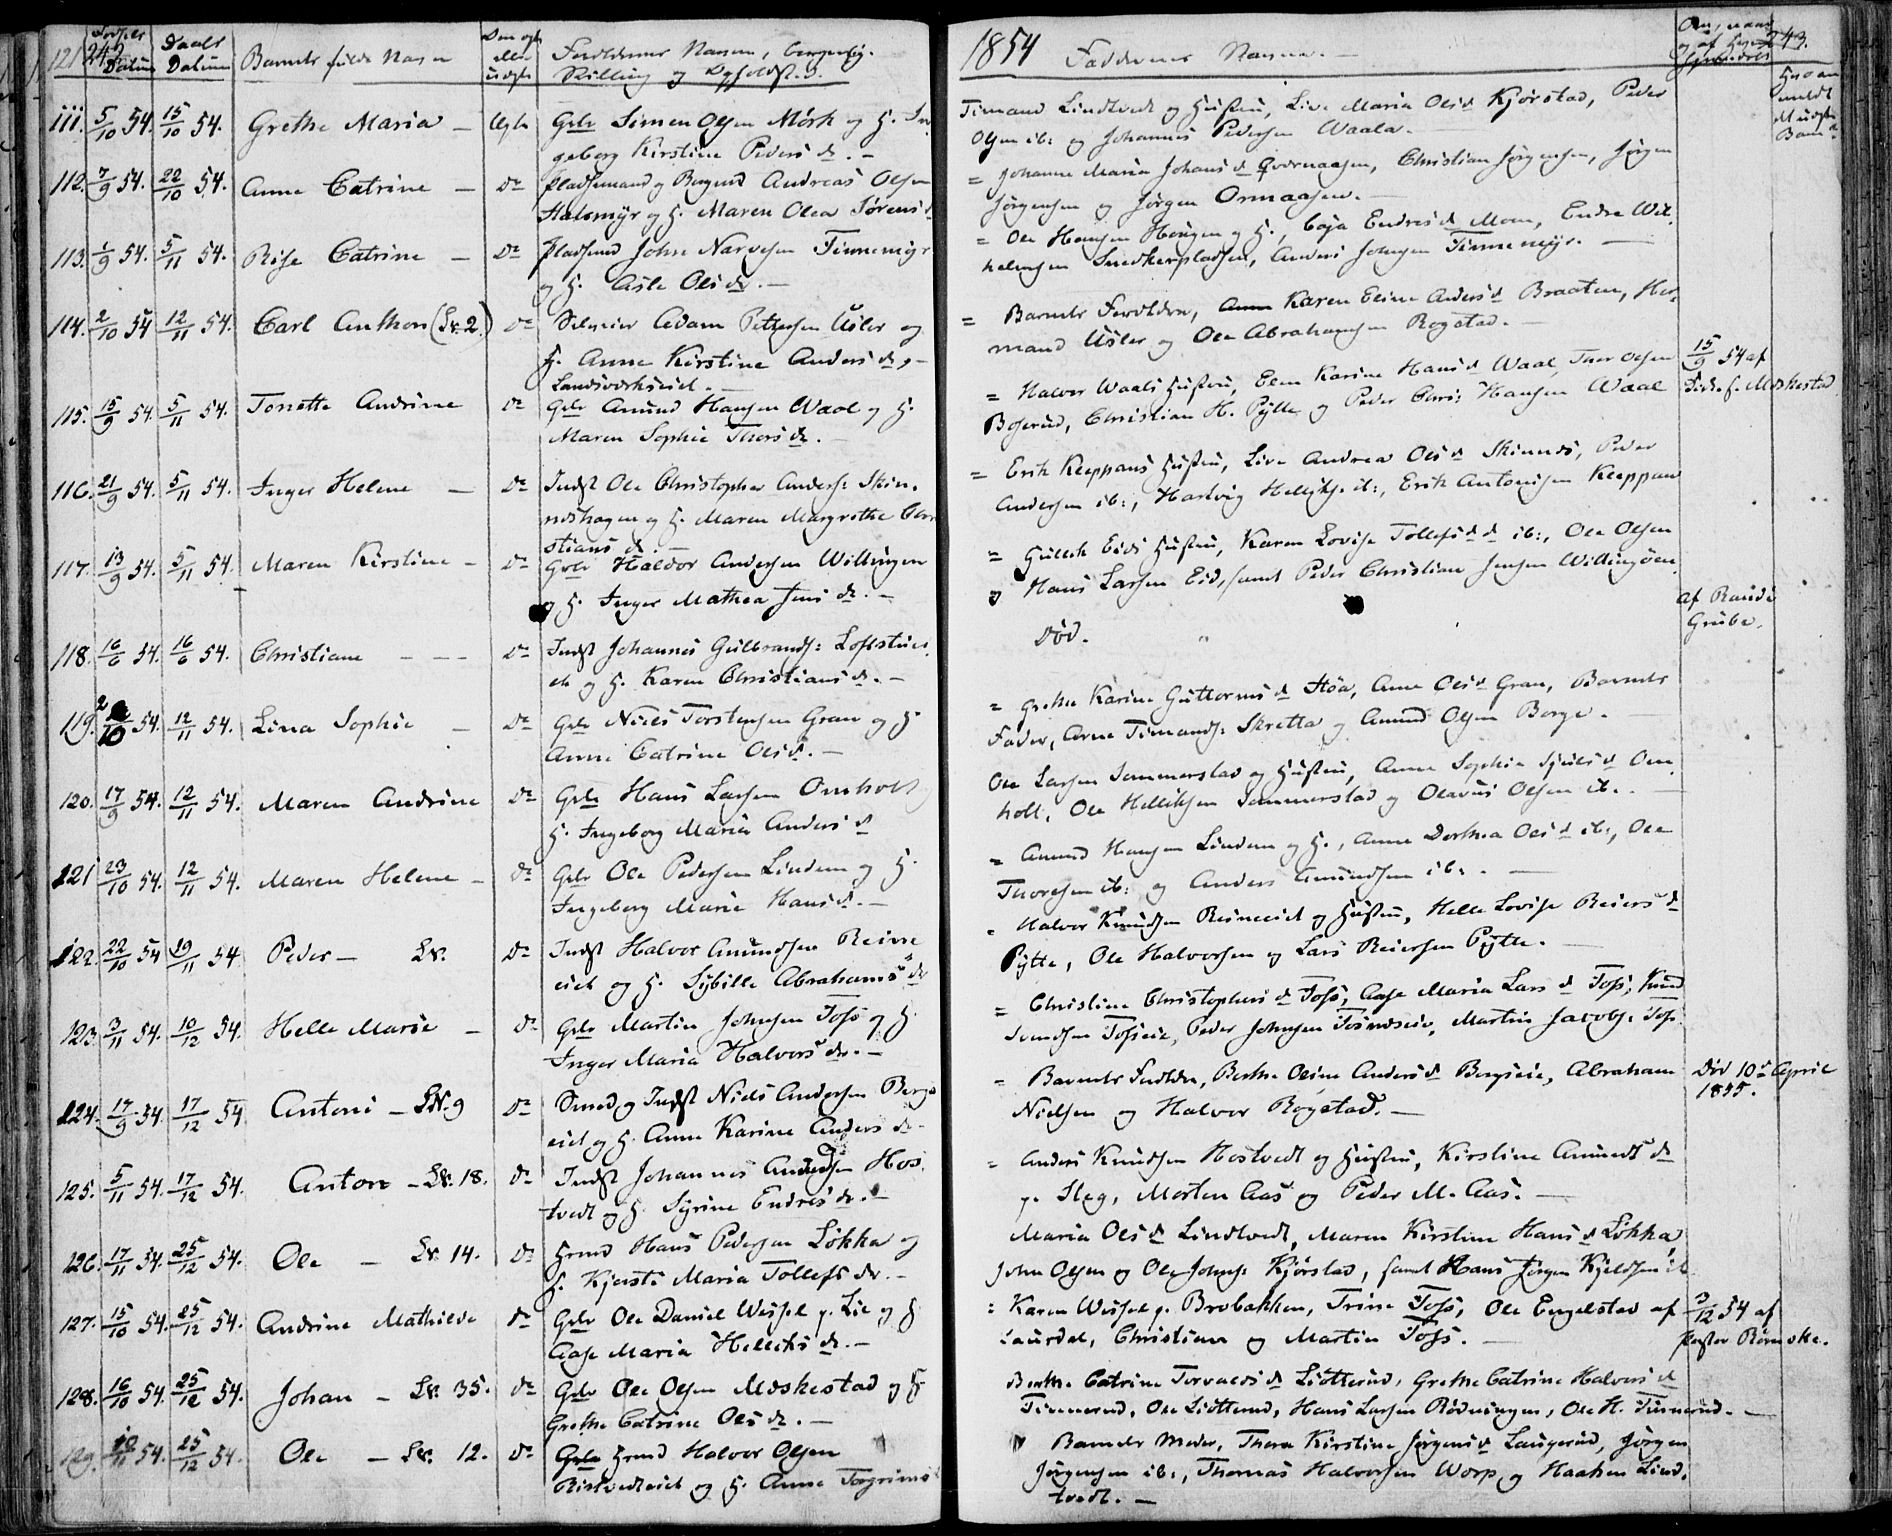 242
Fødsels Datum
Daabs Datum
Barnets fulde Navn
Forældrenes Navne, borgerlig
Stilling og Opholdsted.
111. 5/10 54. 15/10 54. Grethe Maria — Ægte Grbr Simen Olsen Mörk og H. In
geborg Kirstine Peders dr. —
112. 7/9 54. 22/10 54. Anne Catrine — do Pladsemand og Bergmd Andreas Olsen
Halsmyr og H. Maren Olea Sörens d
113. 1/9 54. 5/11 54. Rise Catrine — do Pladsemd John Narvesen Tinnemyr
og H. Aslle Ols dr. —
114. 2/10 54 12/11 54. Carl Anthon (Lv. 2.) do Adam Pettersen Usler og
H. Anne Kirstine Anders dr, —
Landsværkseiet. —
115. 15/9 54. 5/11 54. Tonette Andrine do Grbr Amund Hansen Waal og H.
Maren Sophie Thors dr. —
116. 21/9 54. 5/11 54. Inger Helene — do Indst Ole Christopher Anders: Skin-
neshagen og H. Maren Margrethe Chri
stians dr. —
117. 13/9 54. 5/11 54. Maren Kirstine — do Grbr Halvor Andersen Willingen
og H. Inger Mathea Jens dr. —
118. 16/6 54. 16/6 54. Christiane — — — do Indst Johannes Gulbrands: Loftstuei-
et og H. Karen Christians dr. —
119. 2/10 54. 12/11 54. Lina Sophie — do Grbr Niels Torstensen Gran og H
Anne Catrine Ols d. —
120. 17/9 54. 12/11 54. Maren Andrine do Grbr Hans Larsen Omholt
H. Ingeborg Maria Anders d
121 23/10 54. 12/11 54. Maren Helene — do Grbr Ole Pedersen Lindem og H.
Ingeborg Marie Hans d. —
122. 22/10 54 19/11 54 Peder — Lv. do Indst Halvor Amundsen Reine
eiet og H. Sybille Abrahams dr
123. 3/11 54. 10/12 54. Helle Marie — do Grbr Martin Johnsen Foss og H.
Inger Maria Halvors dr. —
124. 17/9 54. 17/12 54 Antoni — Lv. 9 do Smed og Indst Niels Andersen Bergs
eiet og H. Anne Karine Anders dr
125. 5/11 54. 17/12 54. Anton — Lv. 18. do Indst Johannes Amundsen Hos-
tvedt og H. Syrine Endres dr. —
126. 17/11 54. 25/12 54. Ole — Lv. 14. do Grmd Hans Pedersen Lökka og
H. Kjersti Maria Tollefs dr. —
127. 15/10 54. 25/12 54. Andrine Mathilde do Grbr Ole Daniel Wessel p. Lie og H
Aase Maria Helliks dr. —
128. 16/10 54. 25/12 54. Johan — Lv. 35. do Grbr Ole Olsen Meskestad og H
Grethe Catrine Ols dr. —
129. 10/11 54. 25/12 54. Ole — Lv. 12. do Grmd Halvor Olsen
Ristvedteiet og H. Anne Torgrims
1854 Faddernes Navne. — 243.
Timand Lindtvedt og Hustru, Live Maria Ols d Kjörstad, Peder
Olsen ib: og Johannes Pedersen Waala. —
= Johanne Maria Johans d Qværnaasen, Christian Jörgensen, Jörgen
Jörgensen og Jörgen Ormaasen. —
= Ole Hansen Haugen og H., Caja Endres d Moen, Endre Wil-
helmsen Snedkerpladsen, Anders Johnsen Tinnemyr. —
= Barnets Forældre, Karen Eline Anders d Braaten, Her-
mand Usler og Ole Abrahamsen Rogstad. —
= Halvor Waals Hustru, Elen Karine Hans d Waal, Thor Olsen
Boserud, Christian H. Pytte og Peder Chri: Hansen Waal
15/9 54 af
Meskestad
= Erik Keppans Hustru, Live Andrea Ols d Skinnes, Peder
Andersen ib:, Hartvig Helliks: ib:, Erik Antonisen Keppan
= Gullek Eids Hustru, Karen Lovise Tollefs d ib:, Ole Olsen
og Hans Larsen Eid, samt Peder Christian Jensen Willingöen
Död.
af
Grube.
= Grethe Karine Guttorms d Höa, Anne Ols d Gran, Barnets
Fader, Arne Timands: Skretta og Amund Olsen Berge. —
Ole Larsen Sommerstad og Hustru, Anne Sophie d Om-
holt, Ole Helliksen Sommerstad og Olavus Olsen ib. —
= Amund Hansen Lindem og H., Anne Dorthea Ols d ib:, Ole
Thoresen ib: og Anders Amundsen ib: . —
= Halvor Knudsen Reineeiet og Hustru, Helle Lovise Reiers d
Pytte, Ole Halvorsen og Lars Reiersen Pytte. —
= Christine Christophers d Foss, Aase Maria Lars d Foss, Knud
Fosseie, Peder Johnsen Fosneseie, Martin Jacobs: Foss
= Barnets Forældre, Berthe Oline Anders d Bergseie, Abraham
Nielsen og Halvor Rogstad. —
Död 10de April
1855.
= Anders Knudsen Hostvedt og Hustru, Kirstine Amunds d
p. Skeg, Morten Aas og Peder M. Aas. —
Maria Ols d Lindtvedt, Maren Kirstine Hans d Lökka,
John Olsen og Ole Johns: Kjörstad, samt Hans Jörgen Kjeldsen ib
= Karen Wessel p. Brobakken, Trine Foss, Ole Engelstad af
Laurdal, Christian og Martin Foss. —
3/12 54 af
Pastor
Berthe Catrine Torvalds d Liötterud, Grethe Catrine Halvors d
Tinnerud, Ole Liötterud, Hans Larsen Rödningen, Ole H. Tinnerud. —
Barnets Moder, Thora Kirstine Jörgens d Laugerud, Jörgen
Jörgensen ib:, Thomas Halvorsen Worp og Haaken Lind-
tvedt. —